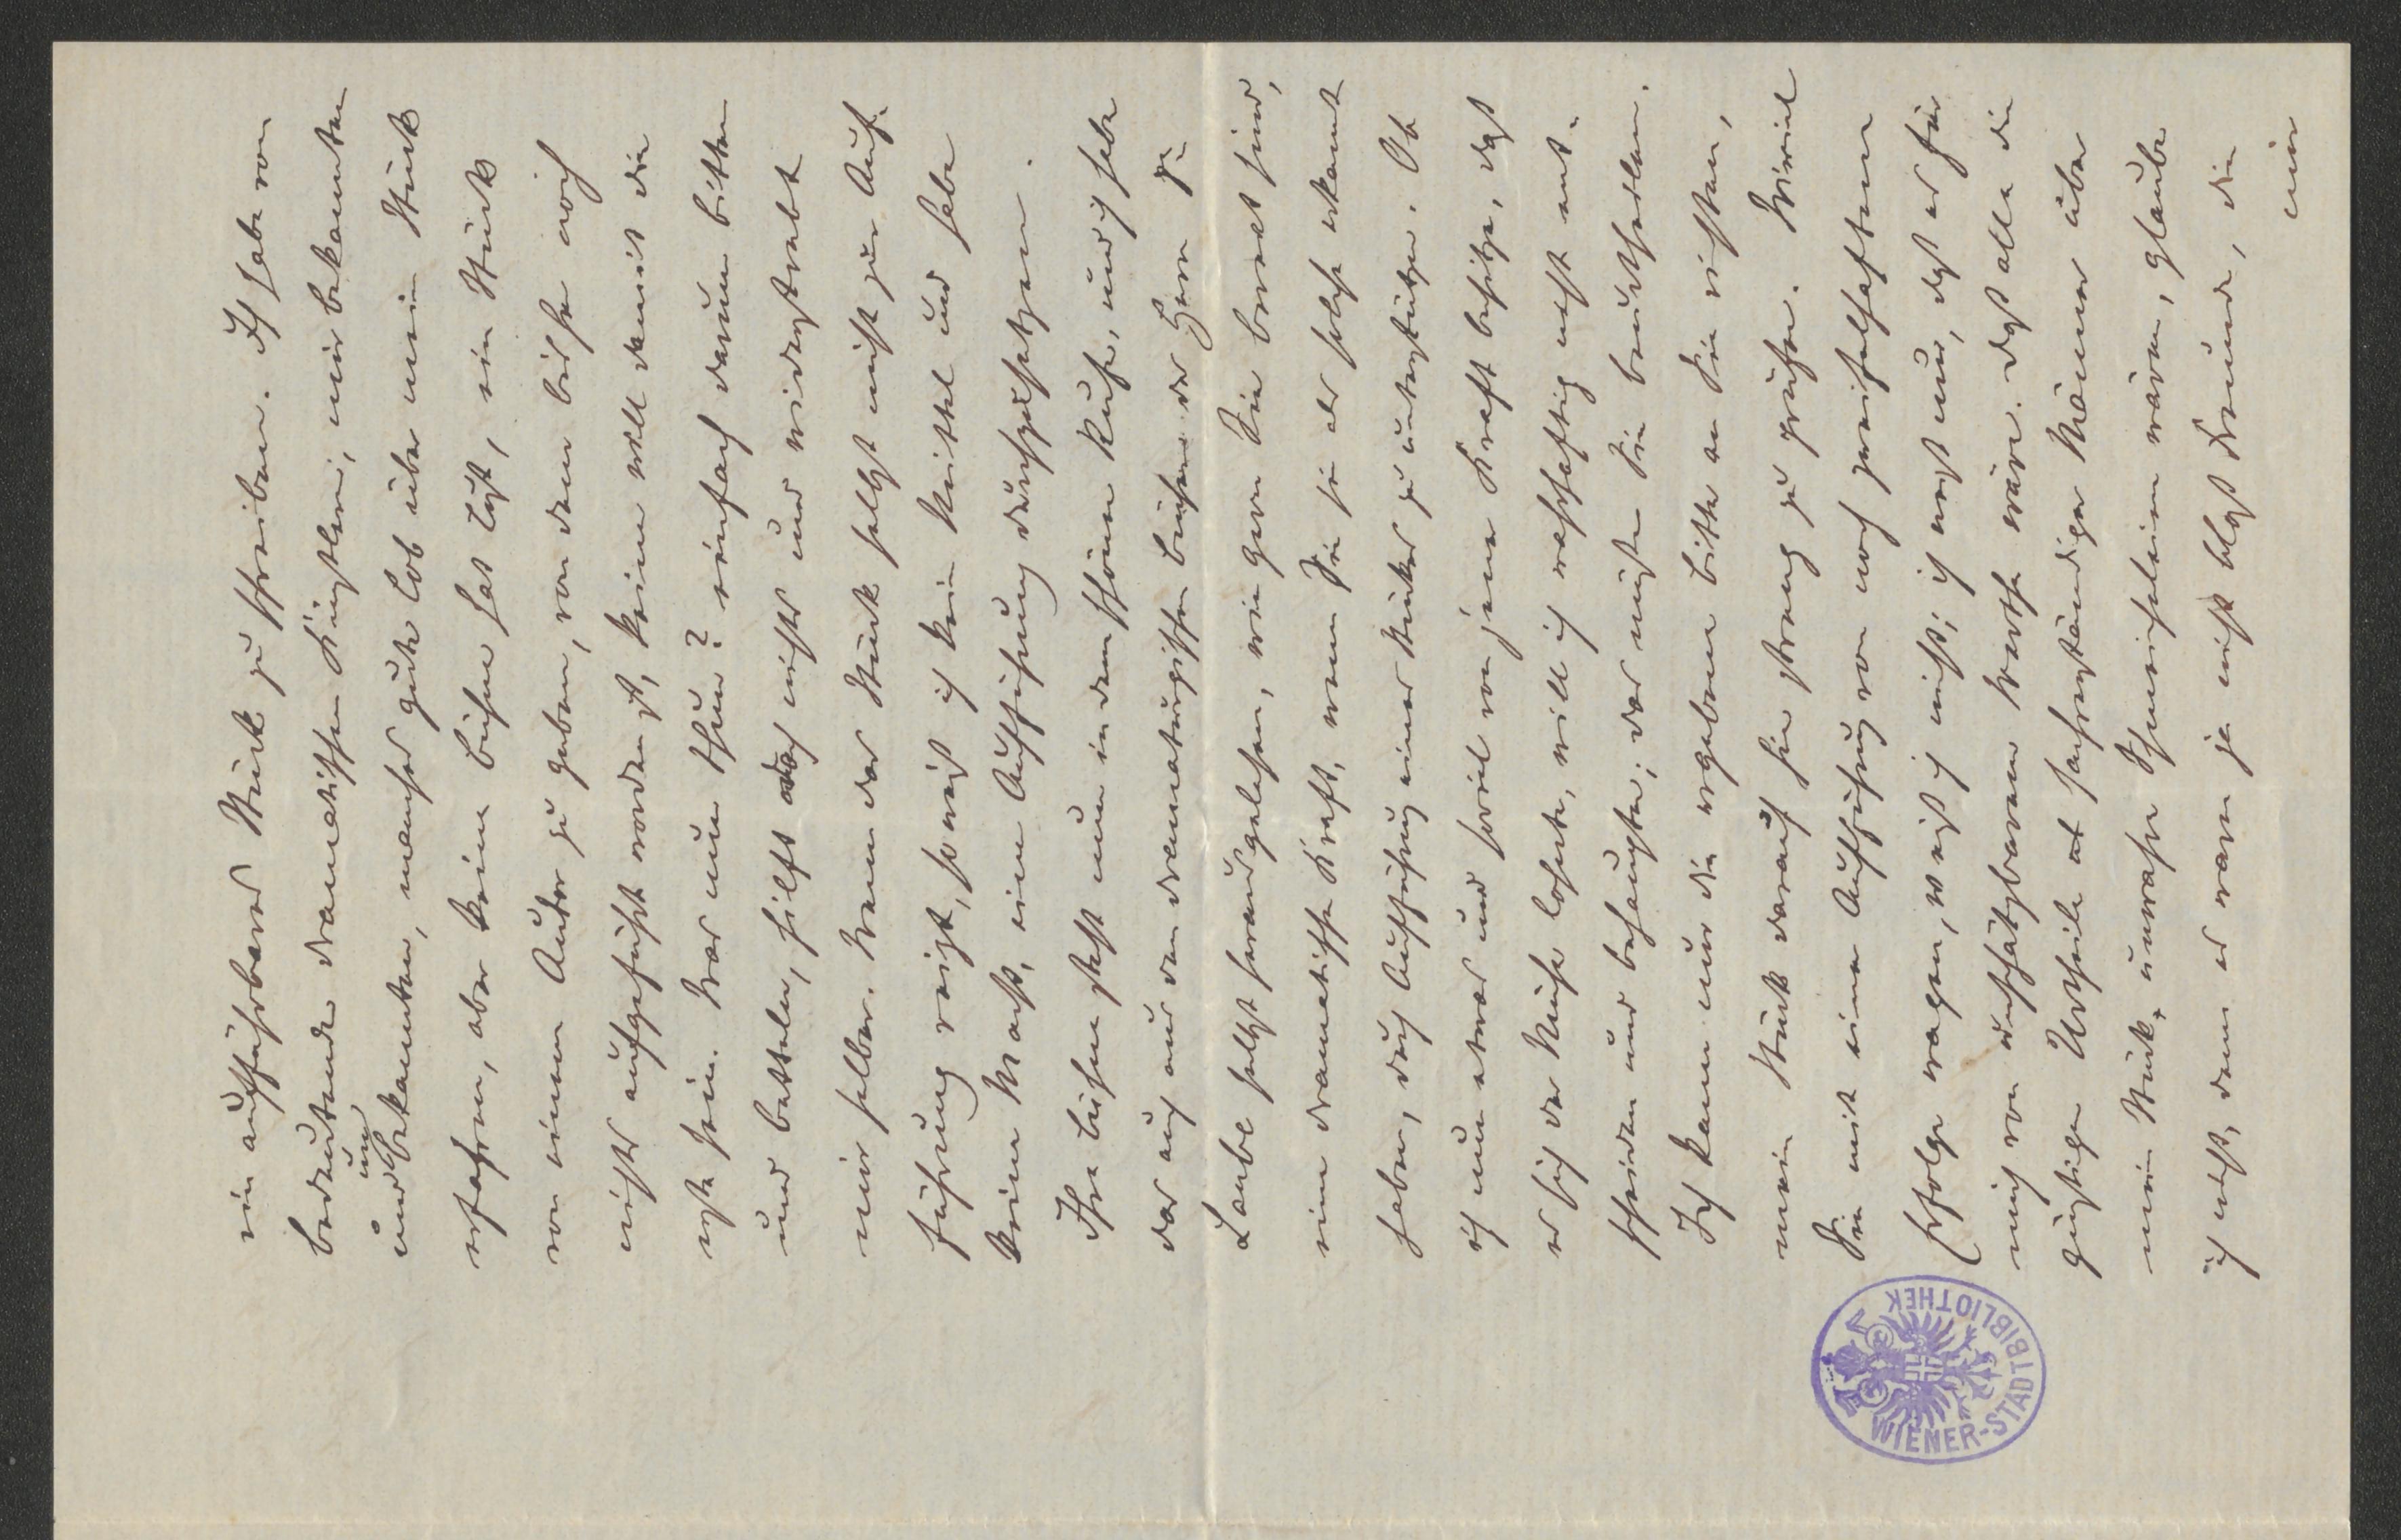 ein aufführbares Stück zu schreiben. Ich habe von
bedeutenden dramatischen Künstlern, mir bekannten
und unbekannten, manches gute Lob über mein Stück
erfahren, aber keine Bühne hat Lust, ein Stück
von einem Autor zu geben, von dem bisher noch
nichts aufgeführt worden ist, keine will damit die
erste sein. Was nun thun? einfach darum bitten
und betteln, hilft doch nichts und widerstrebt
mir selber. Wenn das Stück selbst nicht zur Auf-
führung reizt, so weiß ich kein Mittel und habe
keine Macht, eine Aufführung durchzusetzen.
Ihre Bühne steht nun in dem schönen Rufe, und ich habe
das auch aus den dramaturgischen Büchern des Herrn
Laube selbst herausgelesen, wie gern Sie bereit sind,
eine dramatische Kraft, wenn Sie sie als solche erkannt
haben, durch Aufführung eines Stückes zu unterstützen. Ob
ich nun etwas und soviel von jener Kraft besitze, daß
es sich der Mühe lohnte, will ich wahrhaftig nicht ent-
scheiden und behaupten; das müßen Sie beurtheilen.
Ich kann nur die ergebene Bitte an Sie richten,
mein Stück darauf hin streng zu prüfen. Wieviel
Sie mit einer Aufführung von noch zweifelhaftem
Erfolge wagen, weiß ich nicht; ich weiß nur, daß es für
mich von unschätzbarem Werthe wäre. Daß alle die
günstigen Urtheile sachverständiger Männer über
mein Stück unwahre Schmeicheleien wären, glaube
ich nicht, denn es waren ja nicht bloß Freunde, die
mir
WIENER-STADTBIBLIOTHEK